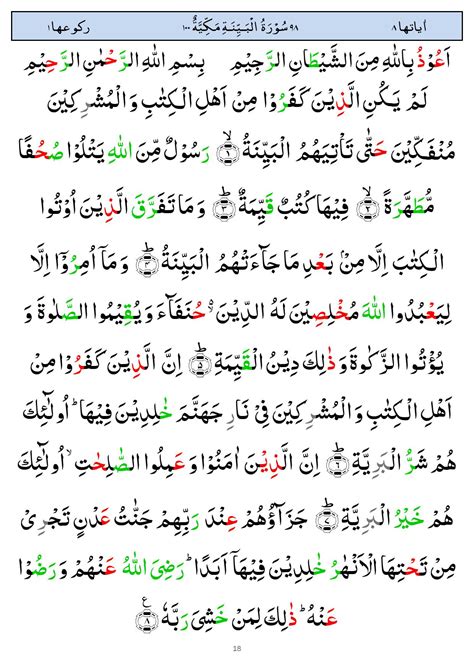 اٰیاتها ٨ ٩٨ سُوْرَةُ الْبَيِّنَةِ مَكِّيَّةٌ ١٠٠ رکوعها ١
اَعُوْذُ بِاللّٰهِ مِنَ الشَّيْطَانِ الرَّجِيْمِ بِسْمِ اللّٰهِ الرَّحْمٰنِ الرَّحِيْمِ
لَمْ يَكُنِ الَّذِيْنَ كَفَرُوْا مِنْ اَهْلِ الْكِتٰبِ وَالْمُشْرِكِيْنَ
مُنْفَكِّيْنَ حَتّٰى تَاْتِيَهُمُ الْبَيِّنَةُ ۙ﴿١﴾ رَسُوْلٌ مِّنَ اللّٰهِ يَتْلُوْا صُحُفًا
مُّطَهَّرَةً ۙ﴿٢﴾ فِيْهَا كُتُبٌ قَيِّمَةٌ ؕ﴿٣﴾ وَمَا تَفَرَّقَ الَّذِيْنَ اُوْتُوا
الْكِتٰبَ اِلَّا مِنْۢ بَعْدِ مَا جَآءَتْهُمُ الْبَيِّنَةُ ؕ﴿٤﴾ وَمَآ اُمِرُوْۤا اِلَّا
لِيَعْبُدُوا اللّٰهَ مُخْلِصِيْنَ لَهُ الدِّيْنَ ۙ۬ حُنَفَآءَ وَيُقِيْمُوا الصَّلٰوةَ وَ
يُؤْتُوا الزَّكٰوةَ وَذٰلِكَ دِيْنُ الْقَيِّمَةِ ؕ﴿٥﴾ اِنَّ الَّذِيْنَ كَفَرُوْا مِنْ
اَهْلِ الْكِتٰبِ وَالْمُشْرِكِيْنَ فِيْ نَارِ جَهَنَّمَ خٰلِدِيْنَ فِيْهَا ؕ اُولٰٓئِكَ
هُمْ شَرُّ الْبَرِيَّةِ ؕ﴿٦﴾ اِنَّ الَّذِيْنَ اٰمَنُوْا وَعَمِلُوا الصّٰلِحٰتِ ۙ اُولٰٓئِكَ
هُمْ خَيْرُ الْبَرِيَّةِ ؕ﴿٧﴾ جَزَآؤُهُمْ عِنْدَ رَبِّهِمْ جَنّٰتُ عَدْنٍ تَجْرِيْ
مِنْ تَحْتِهَا الْاَنْهٰرُ خٰلِدِيْنَ فِيْهَاۤ اَبَدًا ؕ رَضِيَ اللّٰهُ عَنْهُمْ وَرَضُوْا
عَنْهُ ؕ ذٰلِكَ لِمَنْ خَشِيَ رَبَّهٗ ﴿٨﴾ ع
18